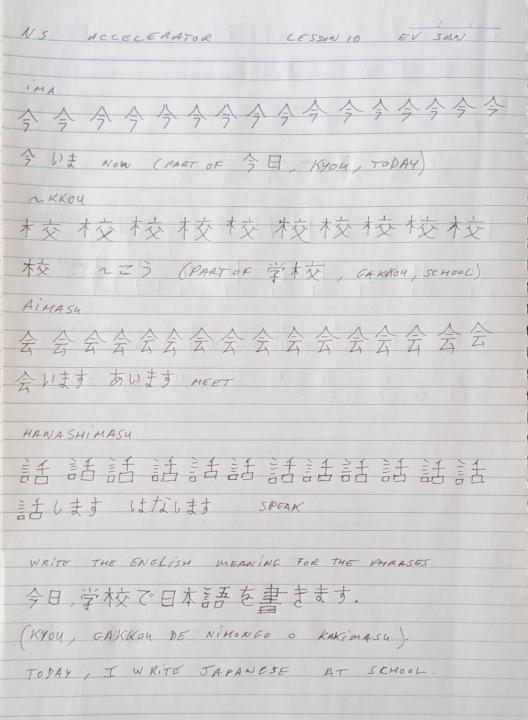 NS ACCELERATOR LESSON 10 EV SAN
iMA
今 今 今 今 今 今 今 今 今 今 今 今 今 今 今 今
今 いま NOW (PART OF 今日, KYOU, TODAY)
~KKOU
校 校 校 校 校 校 校 校 校 校
校 ~こう (PART OF 学校, GAKKOU, SCHOOL)
AiMASU
会 会 会 会 会 会 会 会 会 会 会 会 会 会 会
会います あいます MEET
HANASHiMASU
話 話 話 話 話 話 話 話 話 話 話 話
話します はなします SPEAK
WRiTE THE ENGLiSH MEANiNG FOR THE PHRASES
今日,学校で日本語を書きます.
(KYOU, GAKKOU DE NiHONGO O KAKiMASU).
TODAY, I WRiTE JAPANESE AT SCHOOL.